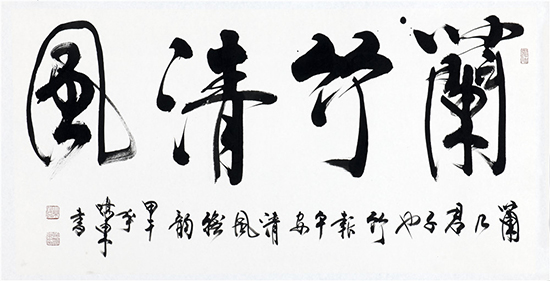 蘭竹清風
蘭乃君子也竹報平安清風韻甲午書